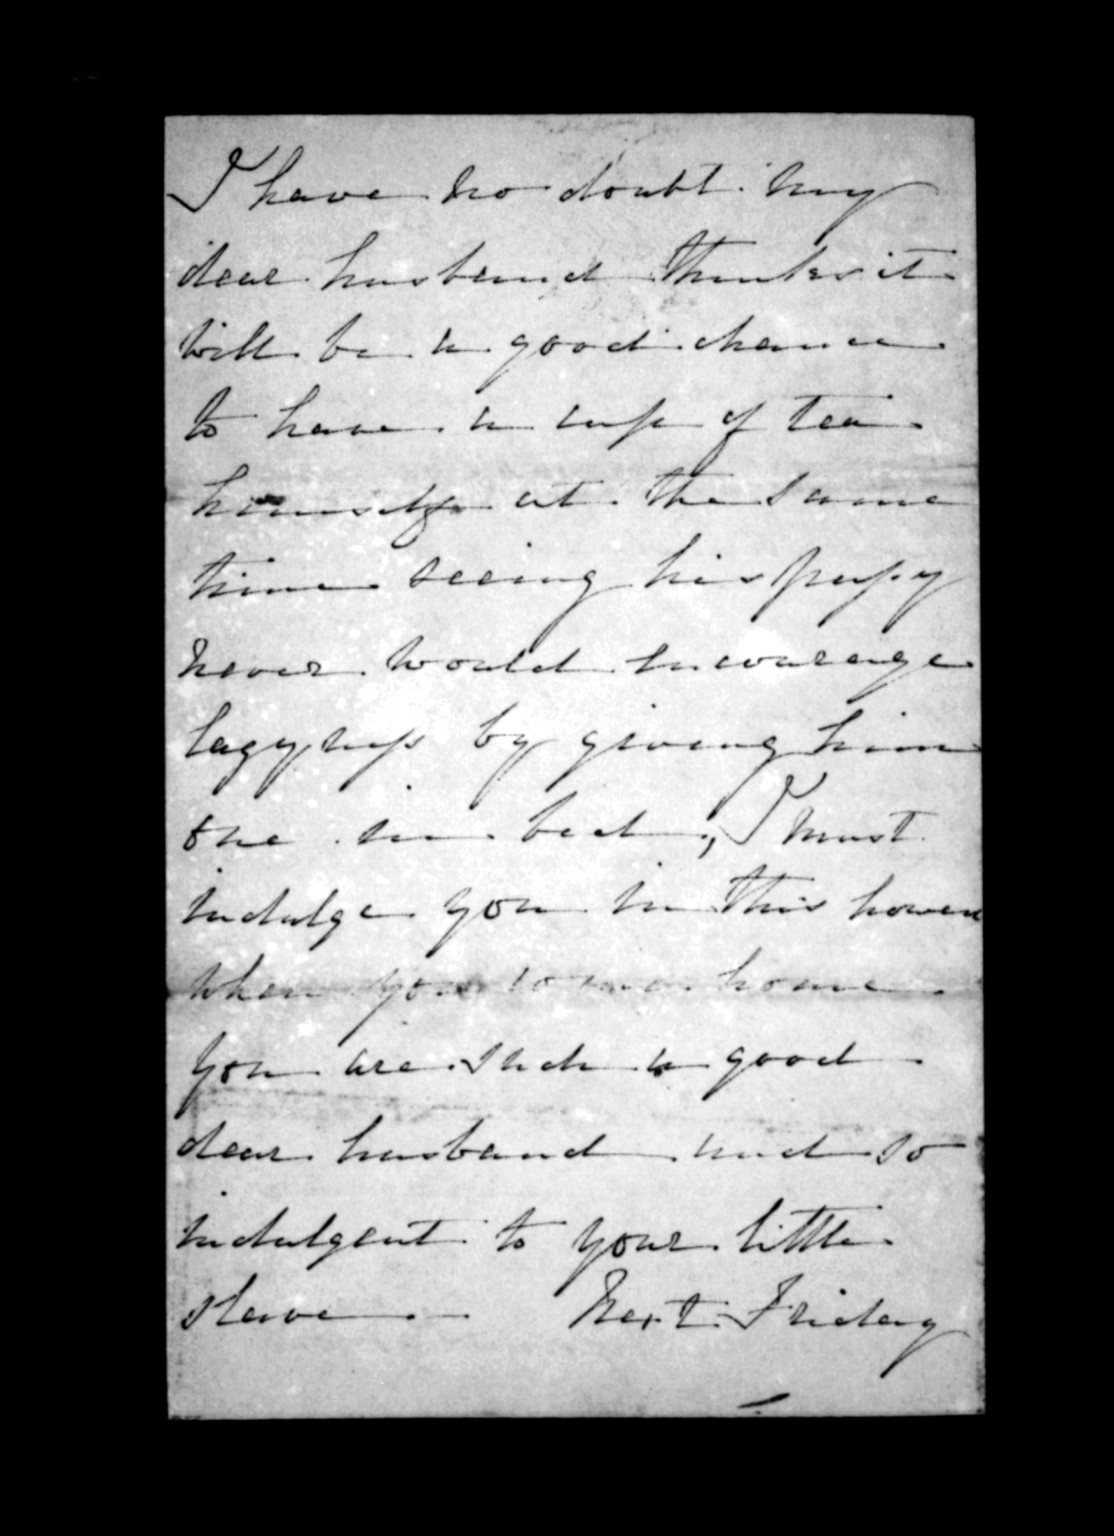 I have no doubt my
dear husband thinks it
will be a good chance
to have a cup of tea
himself at the same
time seeing his pupsy
never would encourage
lazy by giving him
one in bed, I must
indulge you in this however
when you come home
you are such a good
dear husband and so
indulgent to your little
slave. Next Friday